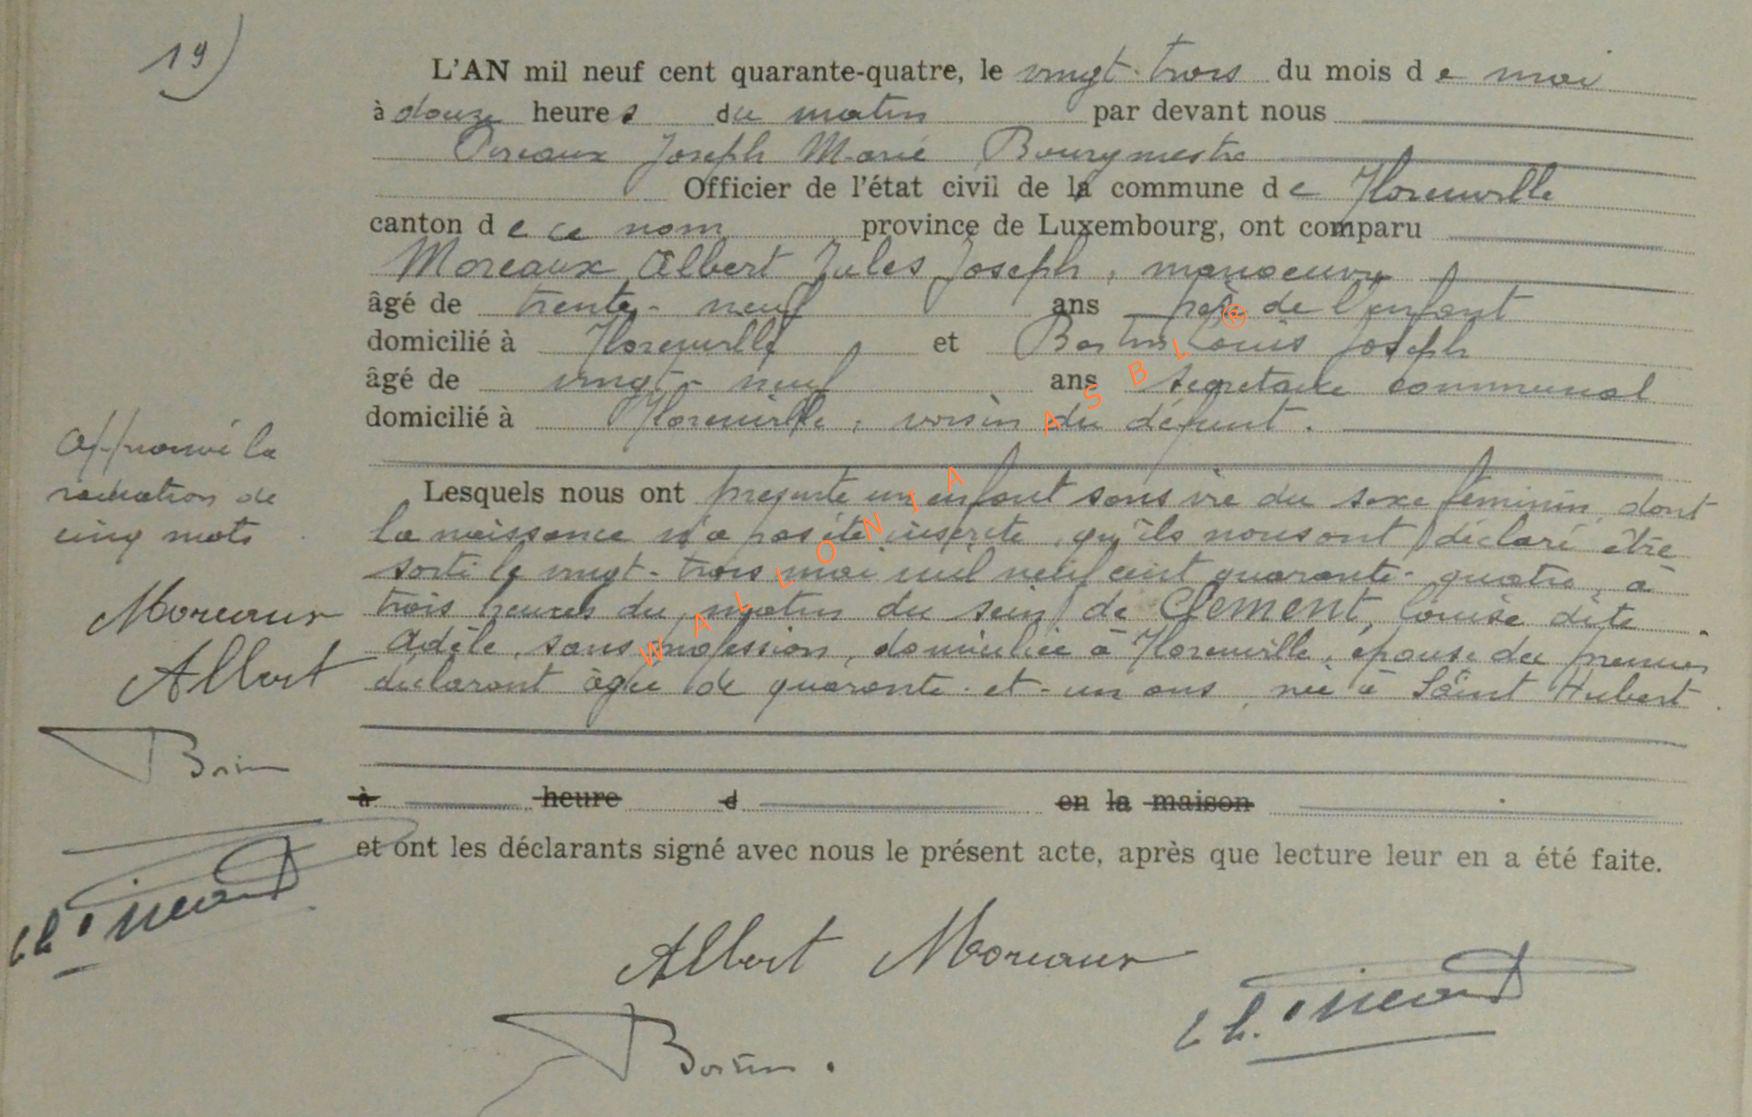 19)
L'AN mil neuf cent quarante-quatre, le vingt-trois du mois de mai
à douze heures du matin par devant nous
Joseph Marie Bourgmestre
Officier de l'état civil de la commune de Florenville
canton de ce nom province de Luxembourg, ont comparu
Moreaux Albert Jules Joseph, manoeuvre
âgé de trente-neuf ans père de l'enfant
domicilié à Florenville et Louis Joseph
âgé de vingt-neuf ans secrétaire communal
domicilié à Florenville, voisin du défunt.
Lesquels nous ont présenté un enfant sans vie du sexe féminin, dont
la naissance n'a pas été inscrite, qu'ils nous ont déclaré être
sorti le vingt-trois mai mil neuf cent quarante-quatre, à
trois heures du matin du sein de CLEMENT, Louise dite
Adèle, sans profession, domiciliée à Florenville, épouse du premier
déclarant âgée de quarante-et-un ans, née à Saint Hubert.
à heure d en la maison
et ont les déclarants signé avec nous le présent acte, après que lecture leur en a été faite.
Approuvé la
radiation de
cinq mots
Moreaux
Albert
Albert Moreaux
WALLONIA ASBL ®